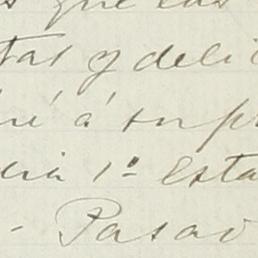 s que las
tas y deli
né á su pr
dia 1º Esta
- Pasao